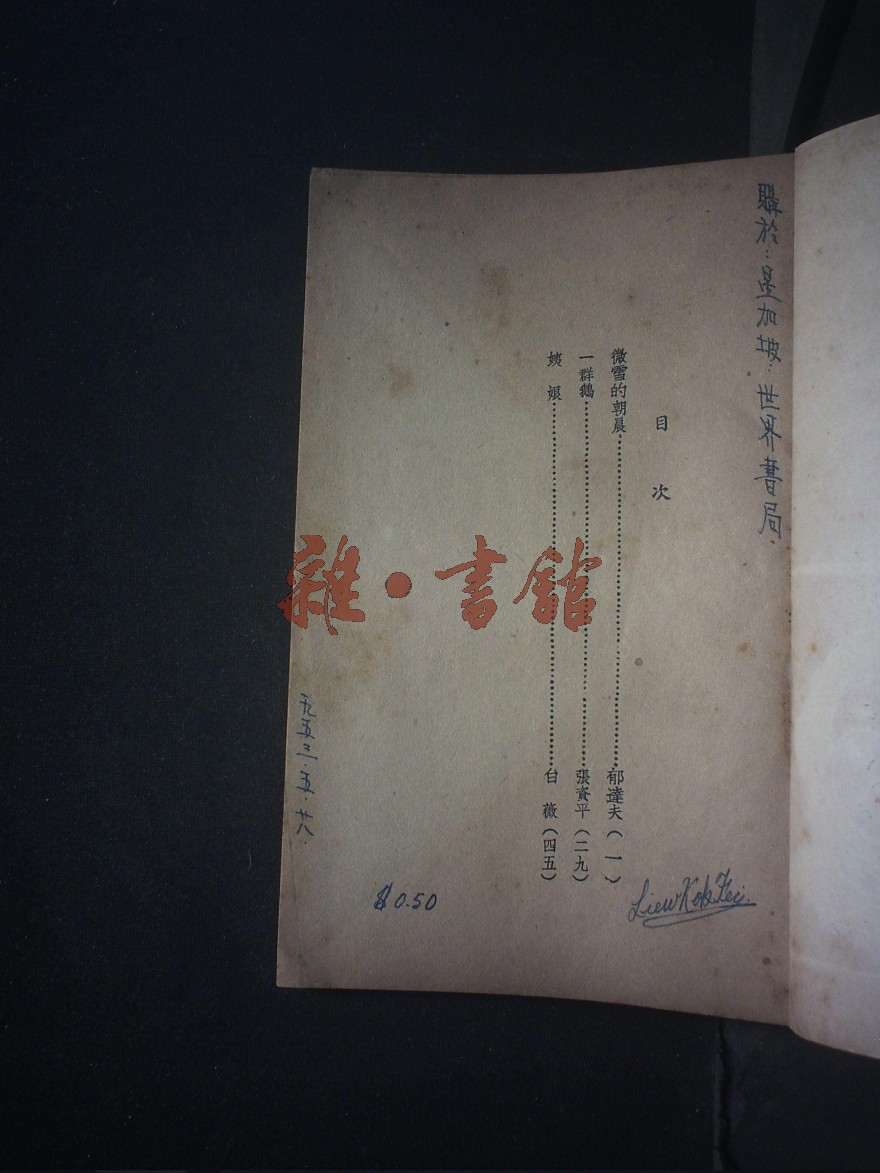 購於：星加坡．世界書局．
目次
微雪的朝晨……郁達夫（一）
一群鵝……張資平（二九）
姨娘……白薇（四五）
九五三．五．廿八．
$0.50
Liew Kok Fei.
雜·書館